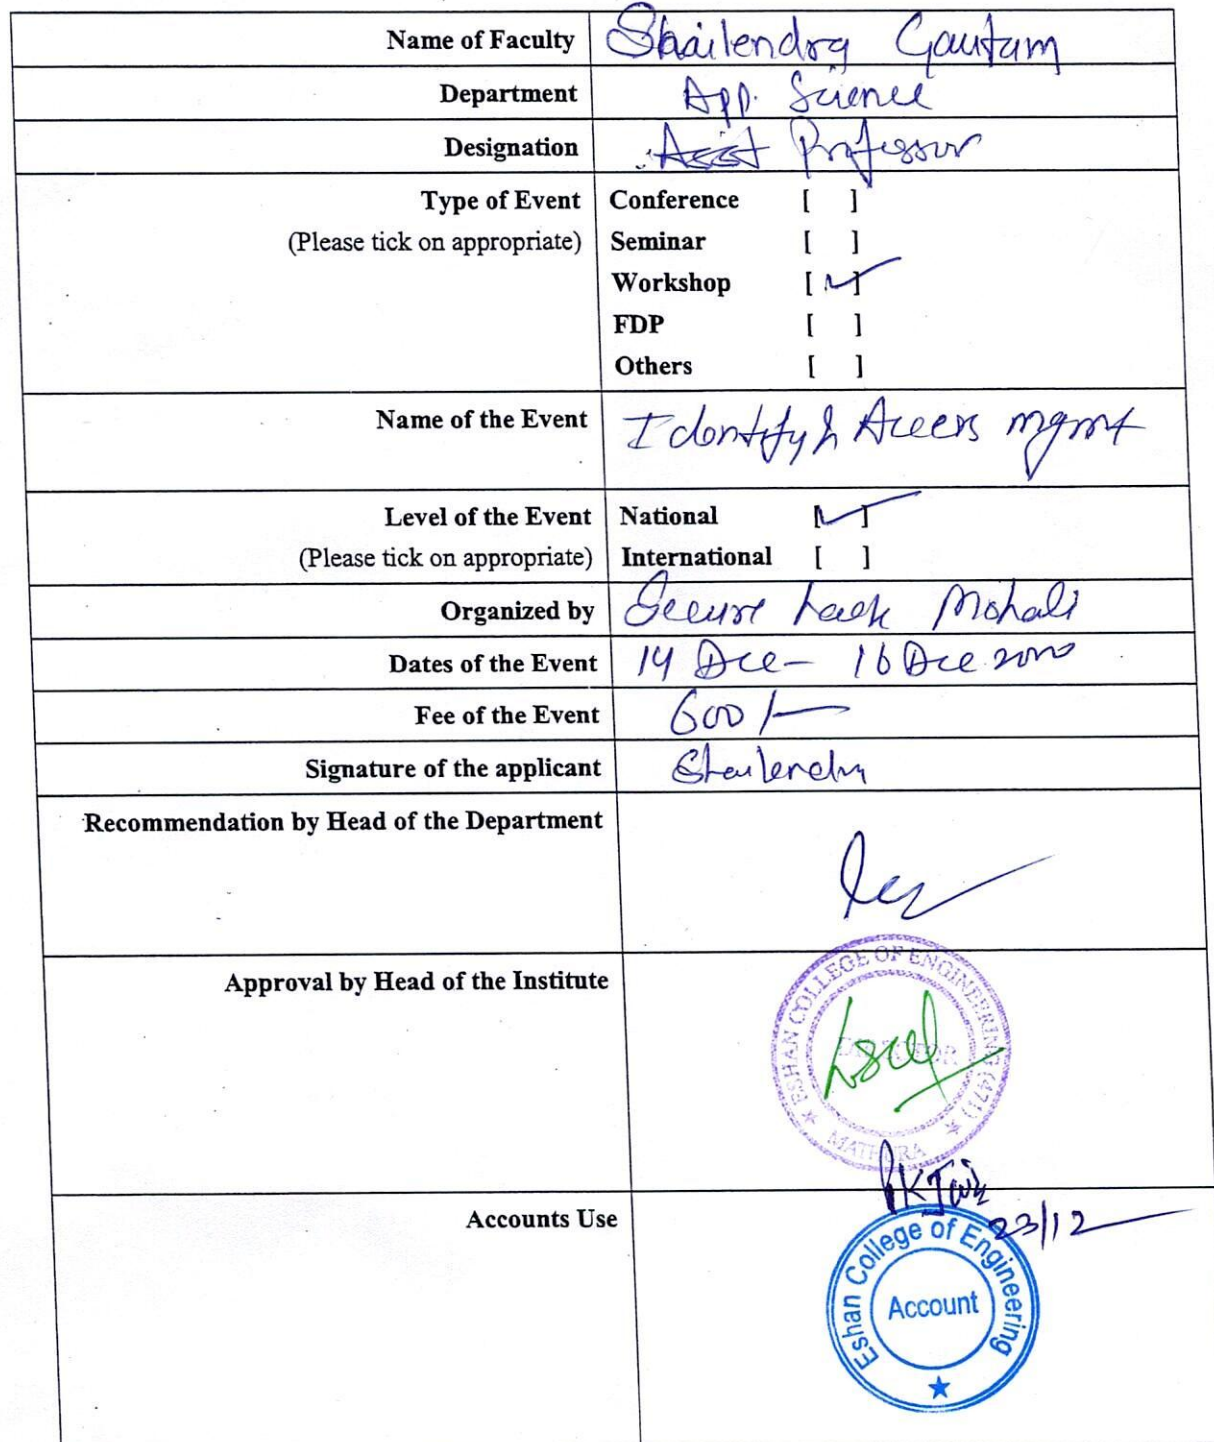 Name of Faculty Shailendra Gautam
Department App. Science
Designation Asst Professor
Type of Event
(Please tick on appropriate)
Conference [ ]
Seminar [ ]
Workshop [✓]
FDP [ ]
Others [ ]
Name of the Event Identify & Access mgmt
Level of the Event
(Please tick on appropriate)
National [✓]
International [ ]
Organized by Secure hack Mohali
Dates of the Event 14 Dec - 16 Dec
Fee of the Event 600/-
Signature of the applicant Shailendra
Recommendation by Head of the Department
Approval by Head of the Institute
ESHAN COLLEGE OF ENGINEERING (471)
DIRECTOR
MATHURA
Accounts Use
23/12
Eshan College of Engineering
Account